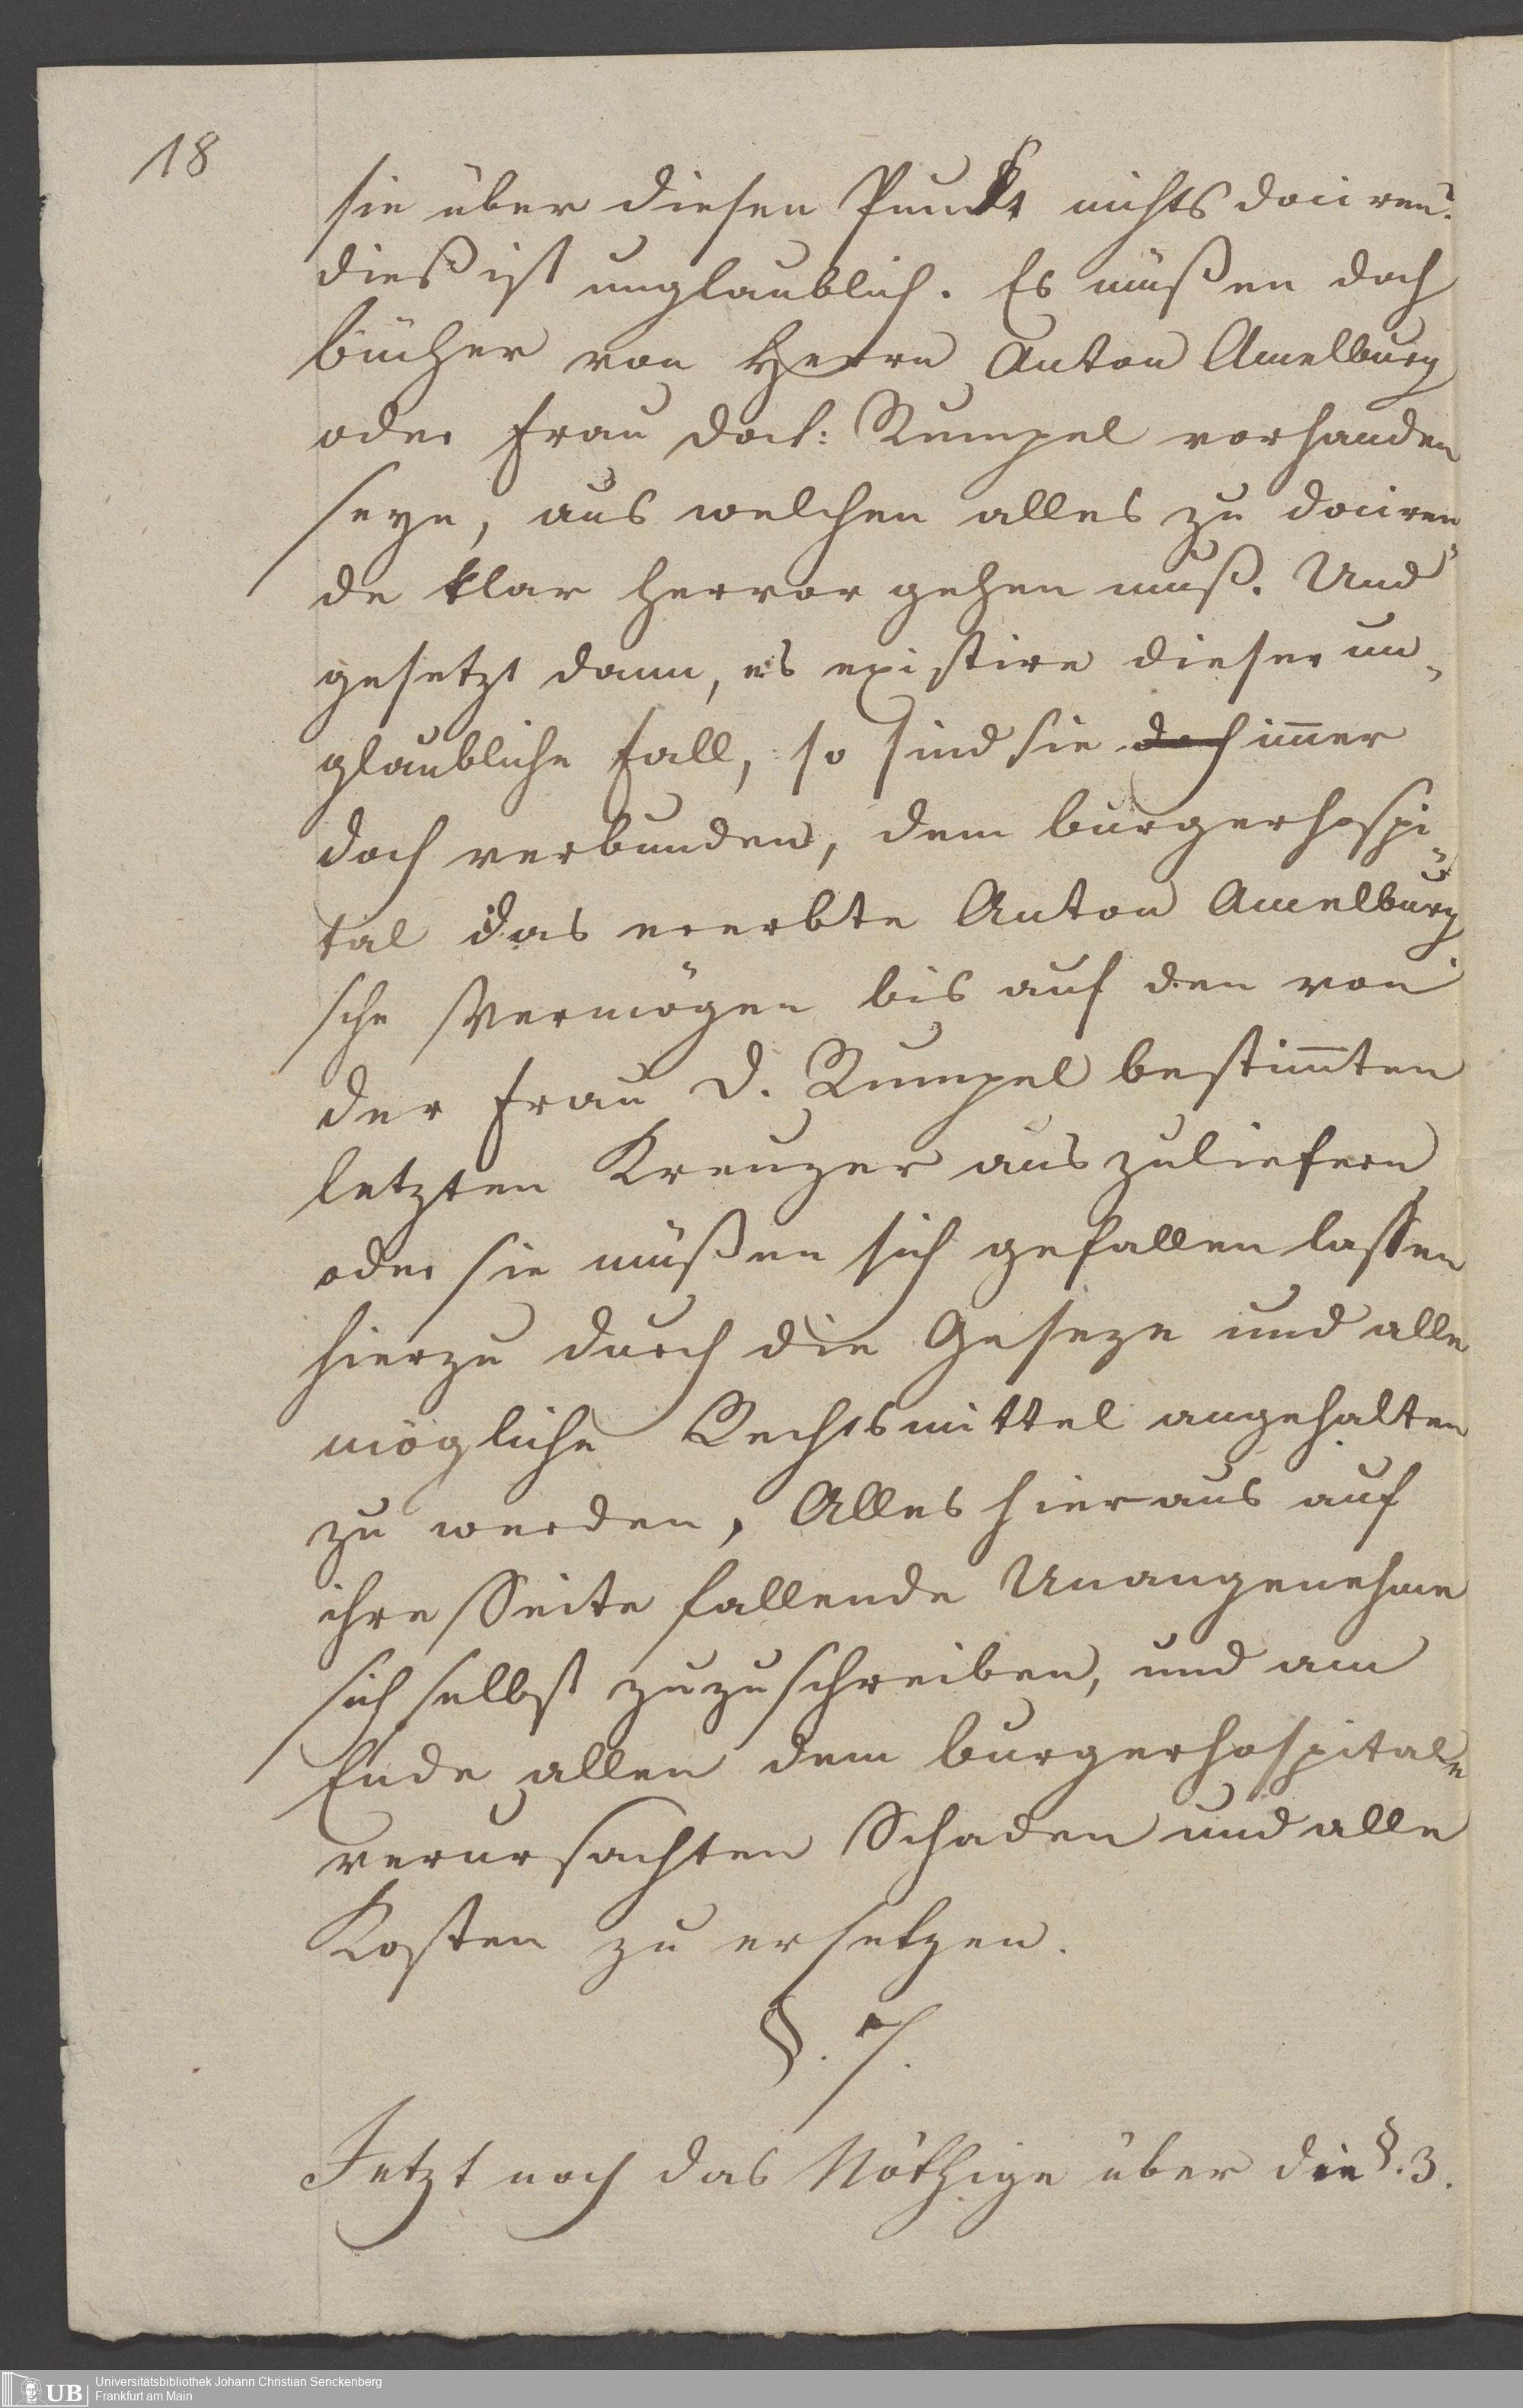 18
sie über diesen Punkt nichts dociren?
dieß ist unglaublich. Es müßen doch
bücher von Herrn Anton Amelburg
oder Frau Doct: Rumpel vorhanden
seyn, aus welchen alles zu dociren„
de klar hervor gehen muß. Und
gesetzt dann, es existire dieser un„
glaubliche Fall, so sind sie doch im̅er
doch verbunden, dem burgerhospi„
tal das ererbte Anton Amelburg
sche Vermögen bis auf den von
der Frau D. Rumpel bestim̅ten
letzten Kreuzer auszuliefern
oder sie müßen sich gefallen lassen
hierzu durch die Geseze und alle
mögliche Rechtsmittel angehalten
zu werden, Alles hieraus auf
ihre Seite fallende Unangenehme
sich selbst zuzuschreiben, und am
Ende allen dem burgerhospitale
verursachten Schaden und alle
Kosten zu ersetzen.
§. 7.
Jetzt noch das Nöthige über die §. 3.
UB
Universitätsbibliothek Johann Christian Senckenberg
Frankfurt am Main